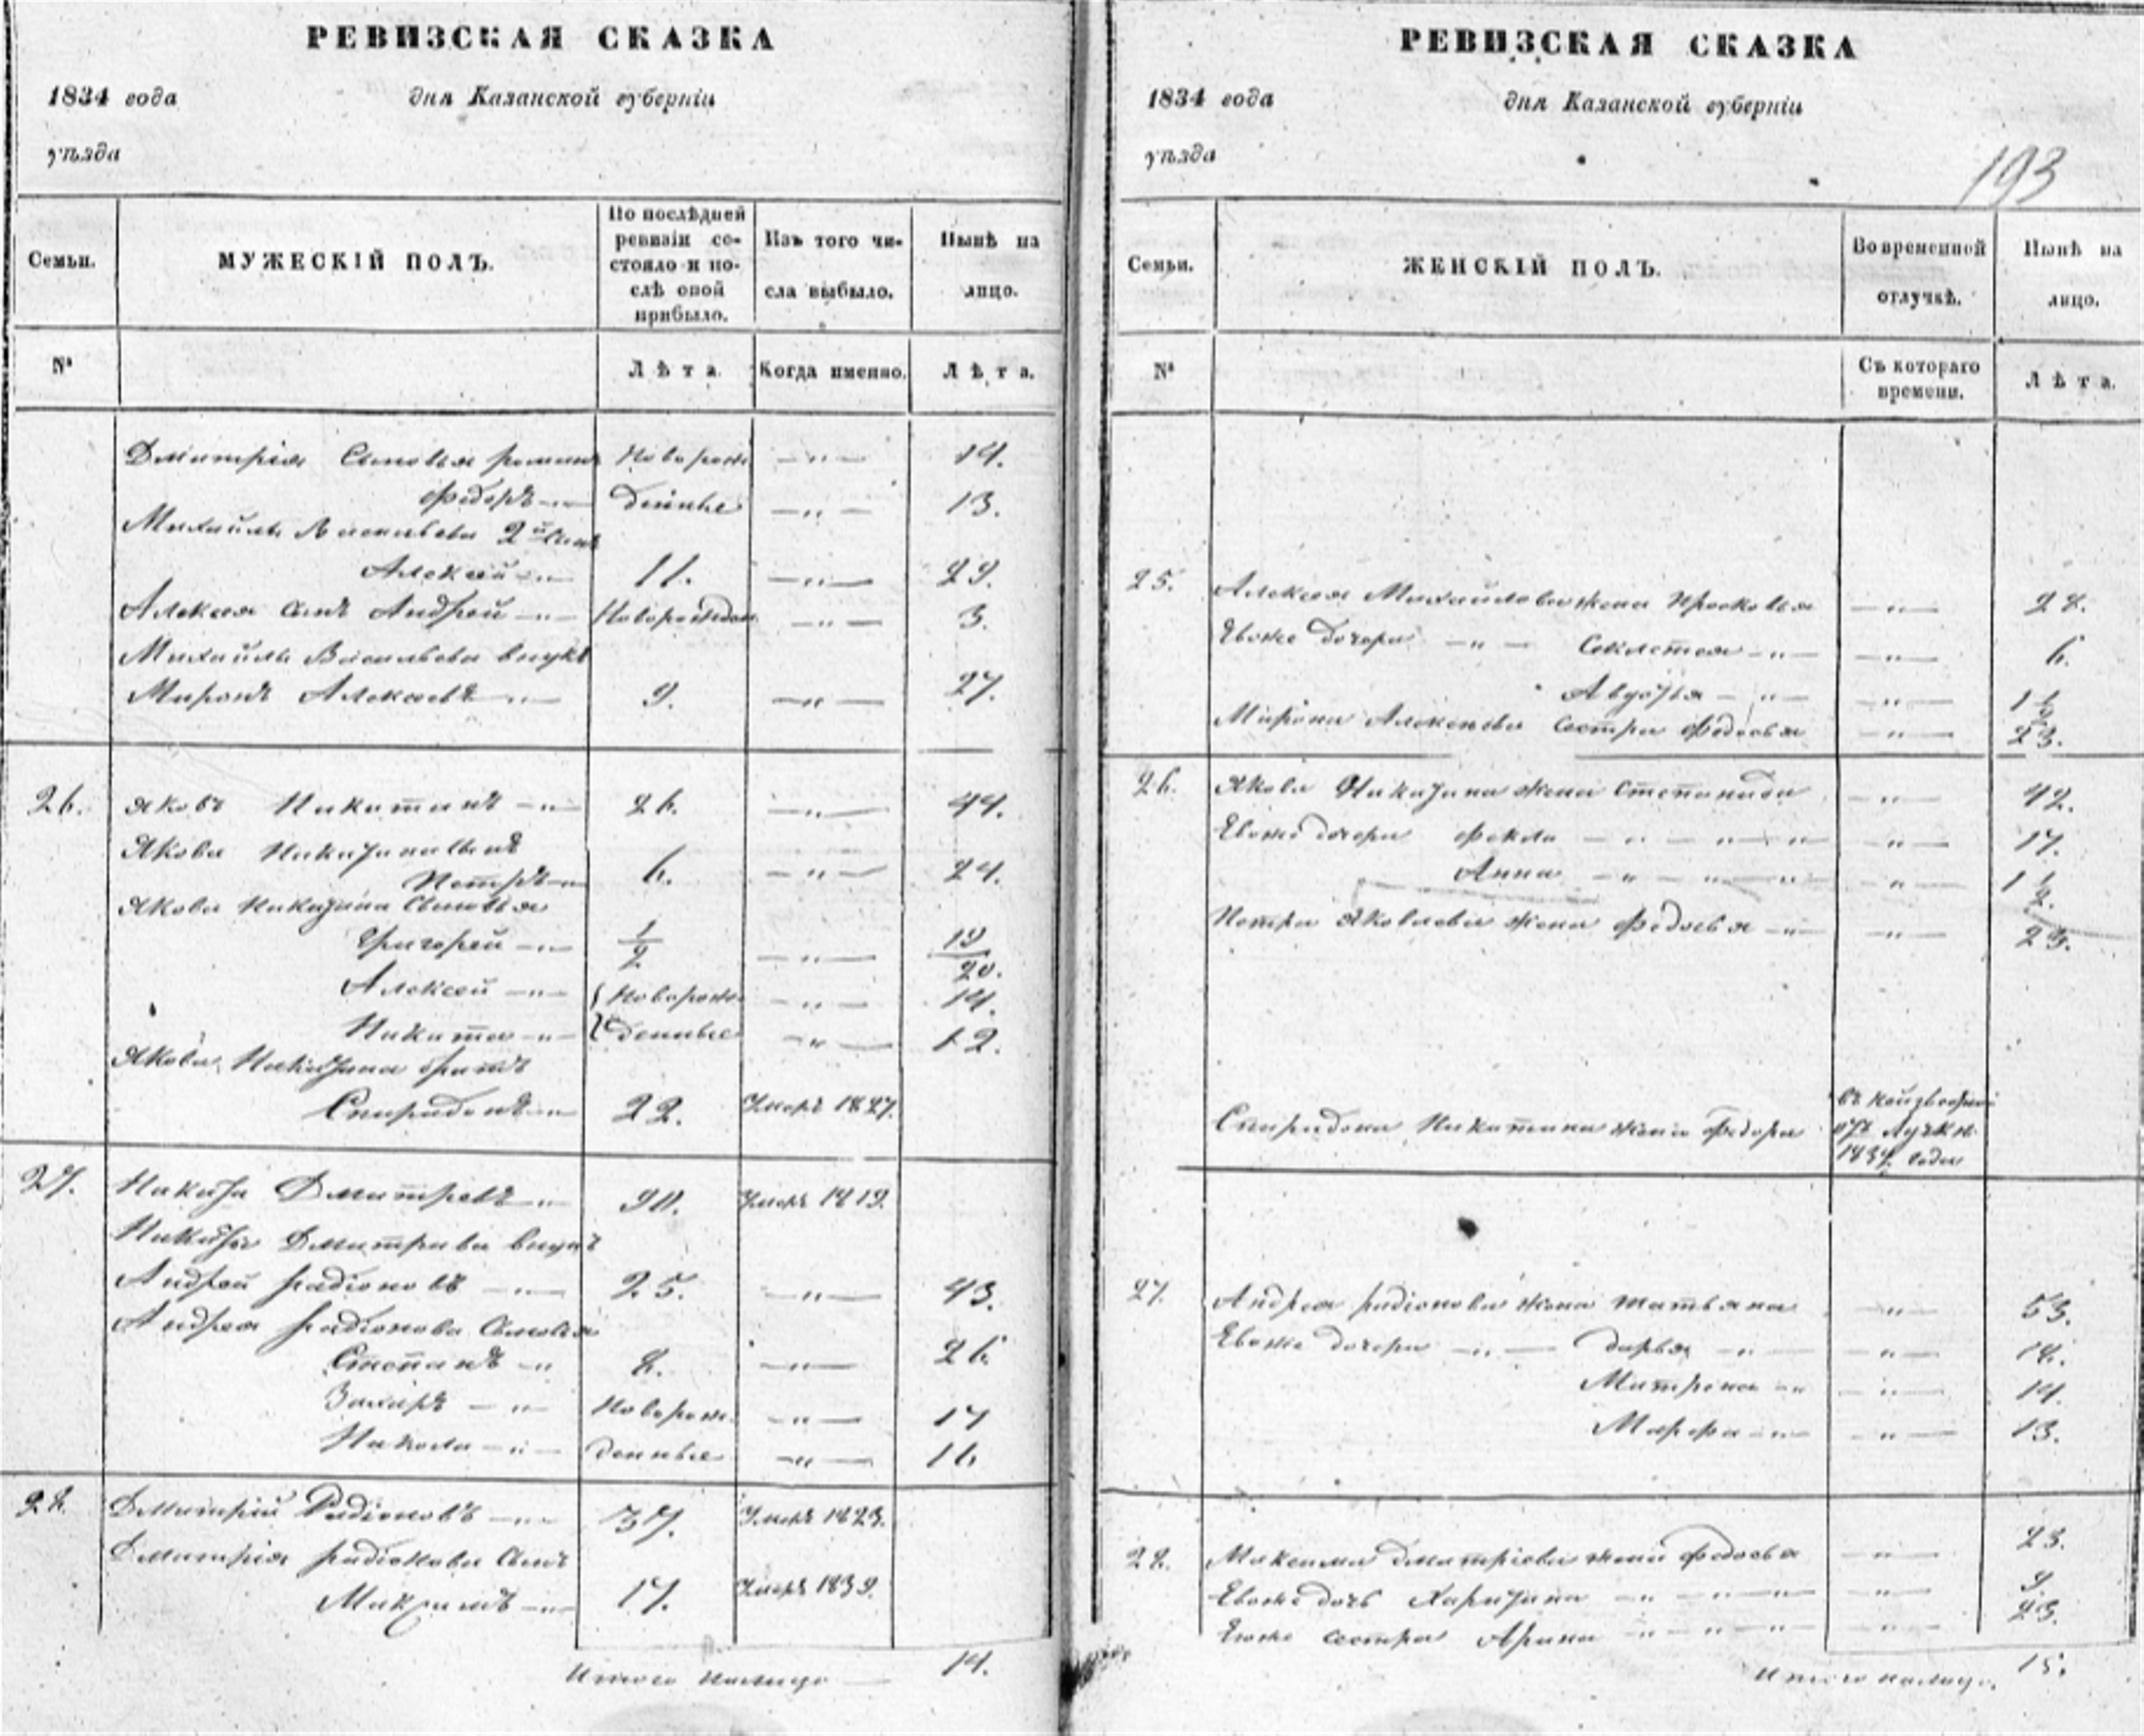 РЕВИЗСКАЯ СКАЗКА
1834 года дня Казанской губерніи
уѣзда
Семьи. МУЖЕСКІЙ ПОЛЪ. По послѣдней ревизіи состояло и послѣ оной прибыло. Изъ того числа выбыло. Нынѣ на лицо.
№ Лѣта. Когда именно. Лѣта.
Дмитрія Сыновья роман Новорож — " — 14.
Федоръ — " — денные — " — 13.
Михайлы Васильева 2й Сынъ
Алексей — " — 11. — " — 29.
Алексея сынъ Андрей — " — Новорожден — " — 3.
Михайлы Васильева внукъ
Миронъ Алексеевъ — " — 9. — " — 27.
26. Яковъ Никитинъ — " — 26. — " — 44.
Якова Никитина сынъ
Петръ — " — 6. — " — 24.
Якова Никитина Сыновья
Григорей — " — 1/2 — " — 19/20.
Алексей — " — Новорож — " — 14.
Никита — " — денные — " — 12.
Якова Никитина братъ
Спиридонъ — " — 22. Умеръ 1827.
27. Никита Дмитревъ — " 90. Умеръ 1819.
Никиты Дмитриева внукъ
Андрей радіоновъ — " — 25. — " — 43.
Андрея радіонова Сыновья
Степанъ — " 8. — " — 26.
Захаръ — " — Новорож. — " — 17
Никола — " — денные — " — 16
28. Дмитрій Радіоновъ — " — 37. Умеръ 1823.
Дмитрія радіонова Сынъ
Максимъ — " — 17. Умеръ 1832.
Итого налицо — 14.
РЕВИЗСКАЯ СКАЗКА
1834 года дня Казанской губерніи
уѣзда
193
Семьи. ЖЕНСКІЙ ПОЛЪ. Во временной отлучкѣ. Нынѣ на лицо.
№ Съ котораго времени. Лѣта.
25. Алексея Михайлова жена Просковья — " — 28.
Евоже дочери — " — Секлетея — " — — " — 6.
Авдотья — " — — " — 1 1/2
Мирона Алексеева сестра Федосья — " — 23.
26. Якова Никитина жена Степанида — " — 42.
Евоже дочери Фекла — " — " — " — — " — 17.
Анна — " — " — " — — " — 1 1/2.
Петра Яковлева жена Федосья — " — — " — 23.
Спиридона Никитина жена Федора 1834 года
27. Андрея радіонова жена татьяна — " — 53.
Евоже дочери — " — дарья — " — — " — 18.
Матрена — " — " — 14.
Марфа — " — — " — 13.
28. Максима Дмитріева жена Федосья — " — 23.
Евоже дочь Харитина — " — " — " — — " — 9.
Евоже сестра Арина — " — " — " — — " — 23.
Итого налицо. 15.